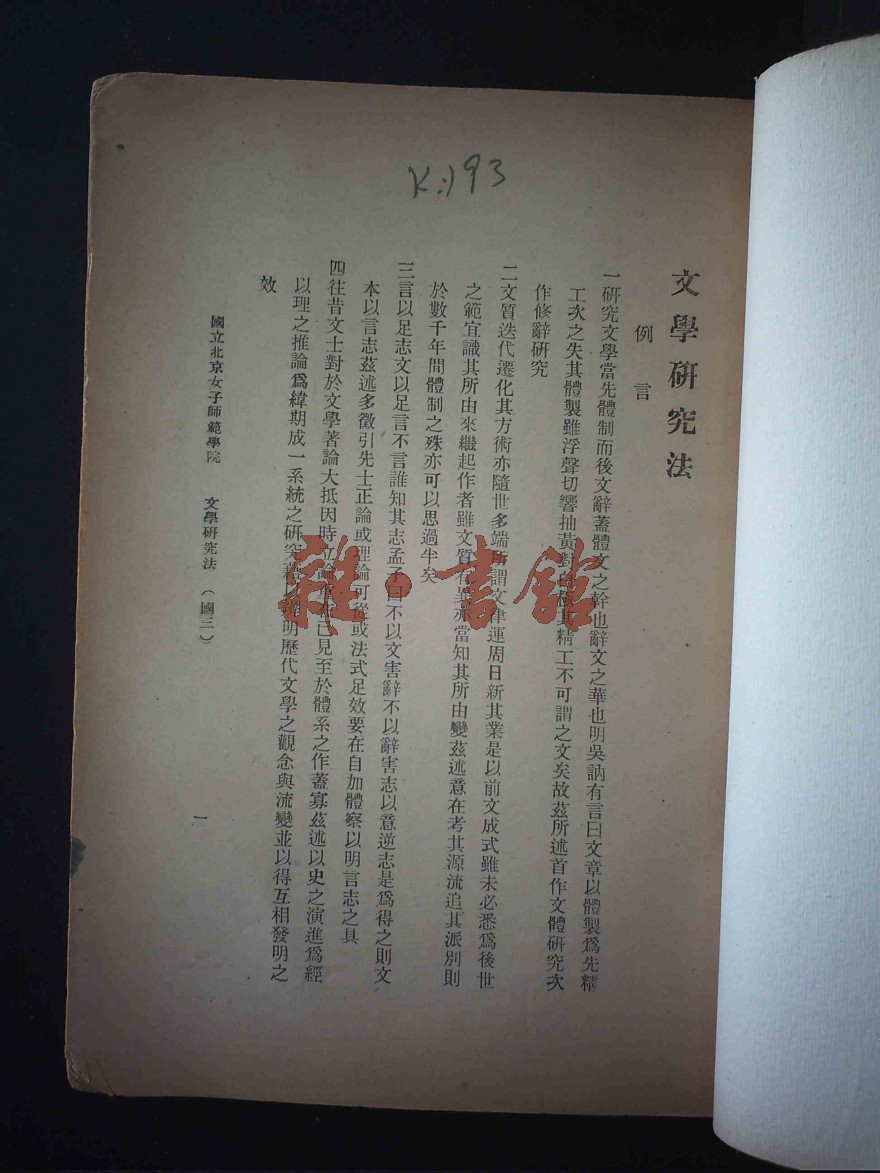 K:193
文學研究法
例言
一研究文學當先體制而後文辭蓋體文之幹也辭文之華也明吳訥有言曰文章以體製爲先精
工次之失其體製雖浮聲切響抽黃對白極其精工不可謂之文矣故茲所述首作文體研究次
作修辭研究
二文質迭代遷化其方術亦隨世多端所謂文律運周日新其業是以前文成式雖未必悉爲後世
之範宜識其所由來繼起作者雖文質有異亦當知其所由變茲述意在考其源流追其派別則
於數千年間體制之殊亦可以思過半矣
三言以足志文以足言不言誰知其志孟子曰不以文害辭不以辭害志以意逆志是爲得之則文
本以言志茲述多徵引先士正論或理論可從或法式足效要在自加體察以明言志之具
四往昔文士對於文學著論大抵因時立論 己見至於體系之作蓋寡茲述以史之演進爲經
以理之推論爲緯期成一系統之研究 明歷代文學之觀念與流變並以得互相發明之
效
國立北京女子師範學院 文學研究法 (國三) 一
雜·書館